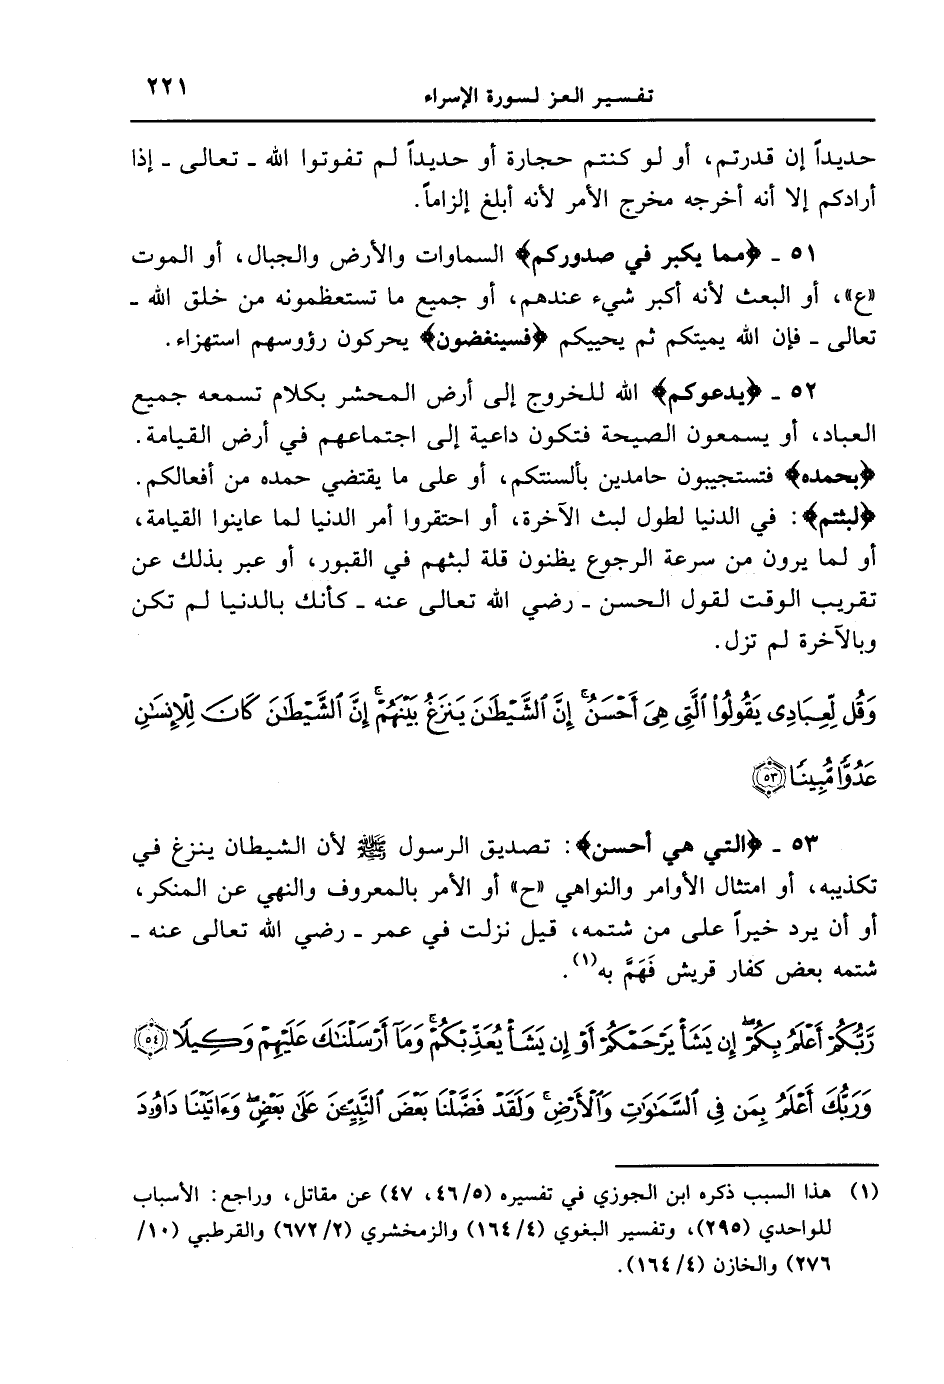 تفسير العز لسورة الإسراء ٢٢١
حديداً إن قدرتم، أو لو كنتم حجارة أو حديداً لم تفوتوا الله ـ تعالى ـ إذا
أرادكم إلا أنه أخرجه مخرج الأمر لأنه أبلغ إلزاماً.
٥١ ـ ﴿مما يكبر في صدوركم﴾ السماوات والأرض والجبال، أو الموت
«ع»، أو البعث لأنه أكبر شيء عندهم، أو جميع ما تستعظمونه من خلق الله ـ
تعالى ـ فإن الله يميتكم ثم يحييكم ﴿فسينغضون﴾ يحركون رؤوسهم استهزاء.
٥٢ ـ ﴿يدعوكم﴾ الله للخروج إلى أرض المحشر بكلام تسمعه جميع
العباد، أو يسمعون الصيحة فتكون داعية إلى اجتماعهم في أرض القيامة.
﴿بحمده﴾ فتستجيبون حامدين بألسنتكم، أو على ما يقتضي حمده من أفعالكم.
﴿لبثتم﴾: في الدنيا لطول لبث الآخرة، أو احتقروا أمر الدنيا لما عاينوا القيامة،
أو لما يرون من سرعة الرجوع يظنون قلة لبثهم في القبور، أو عبر بذلك عن
تقريب الوقت لقول الحسن ـ رضي الله تعالى عنه ـ كأنك بالدنيا لم تكن
وبالآخرة لم تزل.
وَقُل لِّعِبَادِى يَقُولُوا۟ ٱلَّتِى هِىَ أَحْسَنُ ۚ إِنَّ ٱلشَّيْطَـٰنَ يَنزَغُ بَيْنَهُمْ ۚ إِنَّ ٱلشَّيْطَـٰنَ كَانَ لِلْإِنسَـٰنِ
عَدُوًّا مُّبِينًا ﴿٥٣﴾
٥٣ ـ ﴿التي هي أحسن﴾: تصديق الرسول ﷺ لأن الشيطان ينزغ في
تكذيبه، أو امتثال الأوامر والنواهي «ح» أو الأمر بالمعروف والنهي عن المنكر،
أو أن يرد خيراً على من شتمه، قيل نزلت في عمر ـ رضي الله تعالى عنه ـ
شتمه بعض كفار قريش فَهَمَّ به(١).
رَّبُّكُمْ أَعْلَمُ بِكُمْ ۖ إِن يَشَأْ يَرْحَمْكُمْ أَوْ إِن يَشَأْ يُعَذِّبْكُمْ ۚ وَمَآ أَرْسَلْنَـٰكَ عَلَيْهِمْ وَكِيلًا ﴿٥٤﴾
وَرَبُّكَ أَعْلَمُ بِمَن فِى ٱلسَّمَـٰوَٰتِ وَٱلْأَرْضِ ۗ وَلَقَدْ فَضَّلْنَا بَعْضَ ٱلنَّبِيِّـۧنَ عَلَىٰ بَعْضٍ ۖ وَءَاتَيْنَا دَاوُۥدَ
(١) هذا السبب ذكره ابن الجوزي في تفسيره (٤٦/٥، ٤٧) عن مقاتل، وراجع: الأسباب
للواحدي (٢٩٥)، وتفسير البغوي (١٦٤/٤) والزمخشري (٦٧٢/٢) والقرطبي (١٠/
٢٧٦) والخازن (١٦٤/٤).